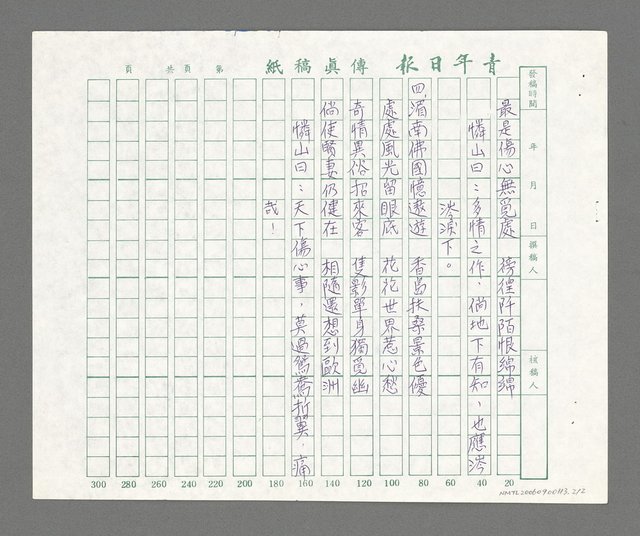 青年日報 傳真稿紙 第 頁 共 頁
發稿時間 年 月 日 撰稿人 核稿人
最是傷心無覓處 徬徨阡陌恨綿綿
憐山曰：多情之作，倘地下有知，也應涔
涔淚下。
四、湄南佛國憶遨遊 香島扶桑景色優
處處風光留眼底 花花世界惹心愁
奇情異俗招來客 隻影單身獨覓幽
倘使賢妻仍健在 相隨還想到歐洲
憐山曰：天下傷心事，莫過鴛鴦折翼，痛
哉！
300 280 260 240 220 200 180 160 140 120 100 80 60 40 20
NMTL20060900113 2/2